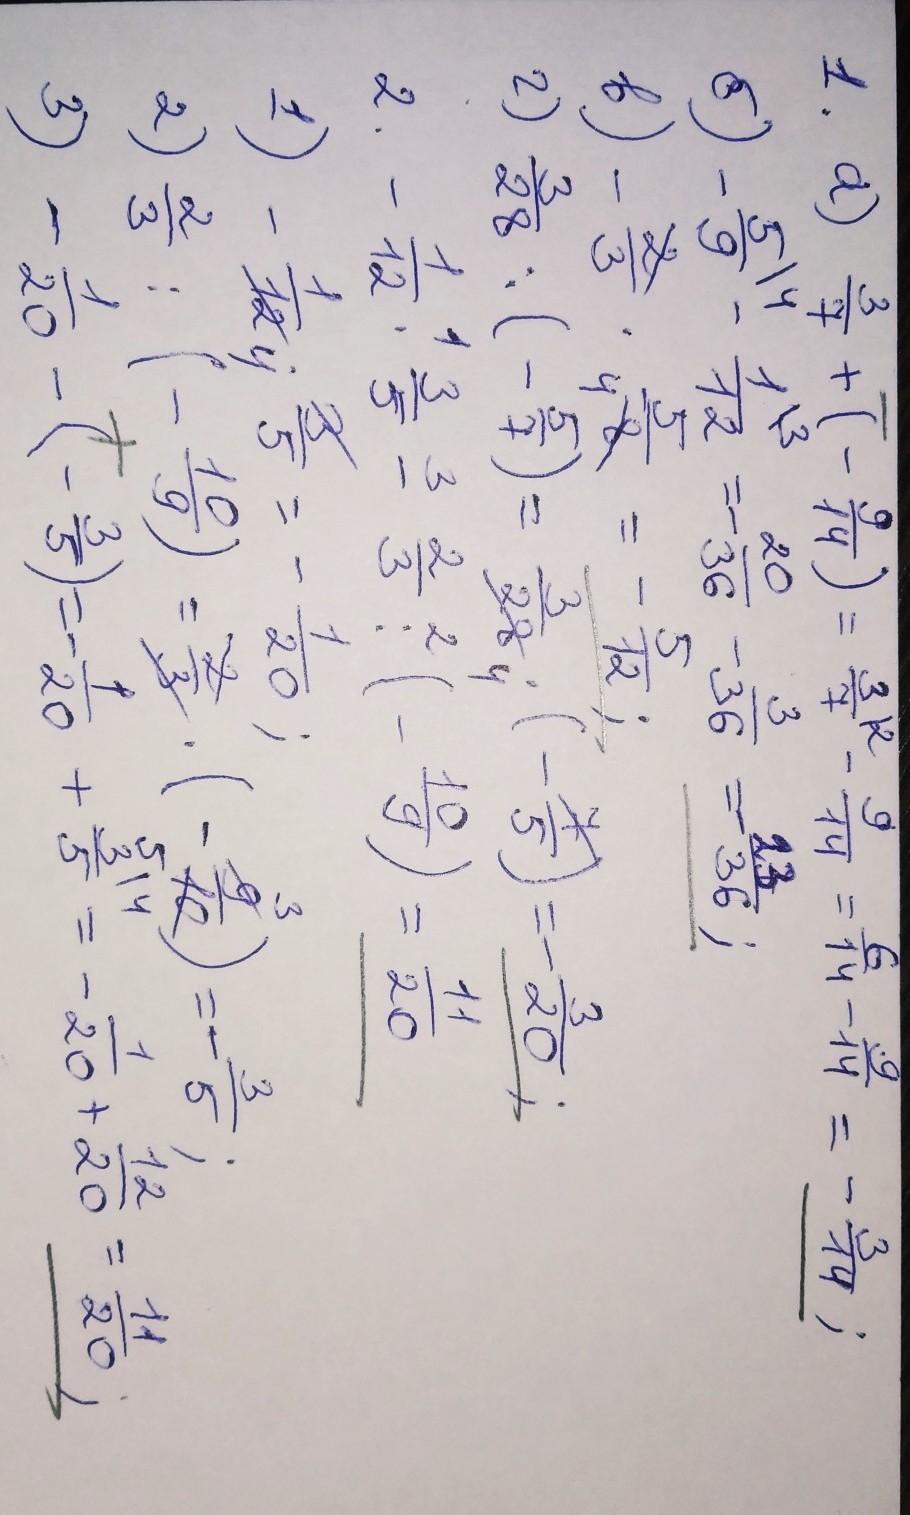 1. а) 3/7 + (- 9/14) = 3/7 \2 - 9/14 = 6/14 - 9/14 = - 3/14;
б) - 5/9 \4 - 1/12 \3 = - 20/36 - 3/36 = - 23/36;
в) - 2/3 · 5/8 4 = - 5/12;
г) 3/28 : (- 5/7) = 3/28 4 · (- 7/5) = - 3/20;
2. - 1/12 ·1 3/5 -3 2/3 :2 (- 10/9) = 11/20
1) - 1/12 4 · 3/5 = - 1/20;
2) 2/3 : (- 10/9) = 2/3 · (- 9/10 3) = - 3/5;
3) - 1/20 - (- 3/5) = - 1/20 + 3/5 \4 = - 1/20 + 12/20 = 11/20;